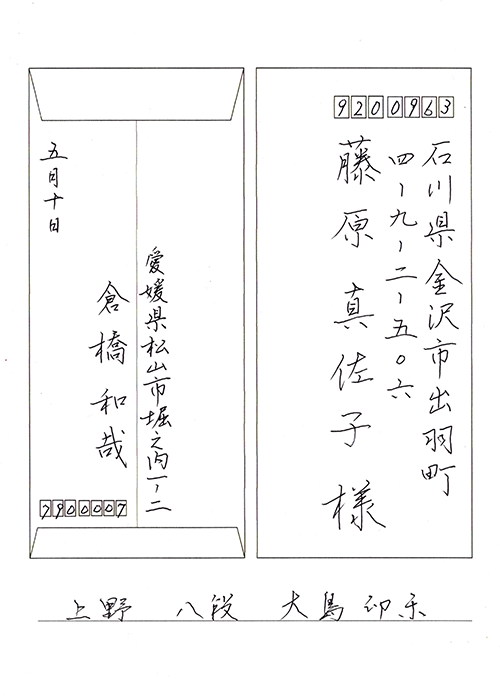 9200963
石川県金沢市出羽町
四-九-二-五〇六
藤原真佐子様
愛媛県松山市堀之内一-二
倉橋和哉
7900007
五月十日
上野 八段 大島